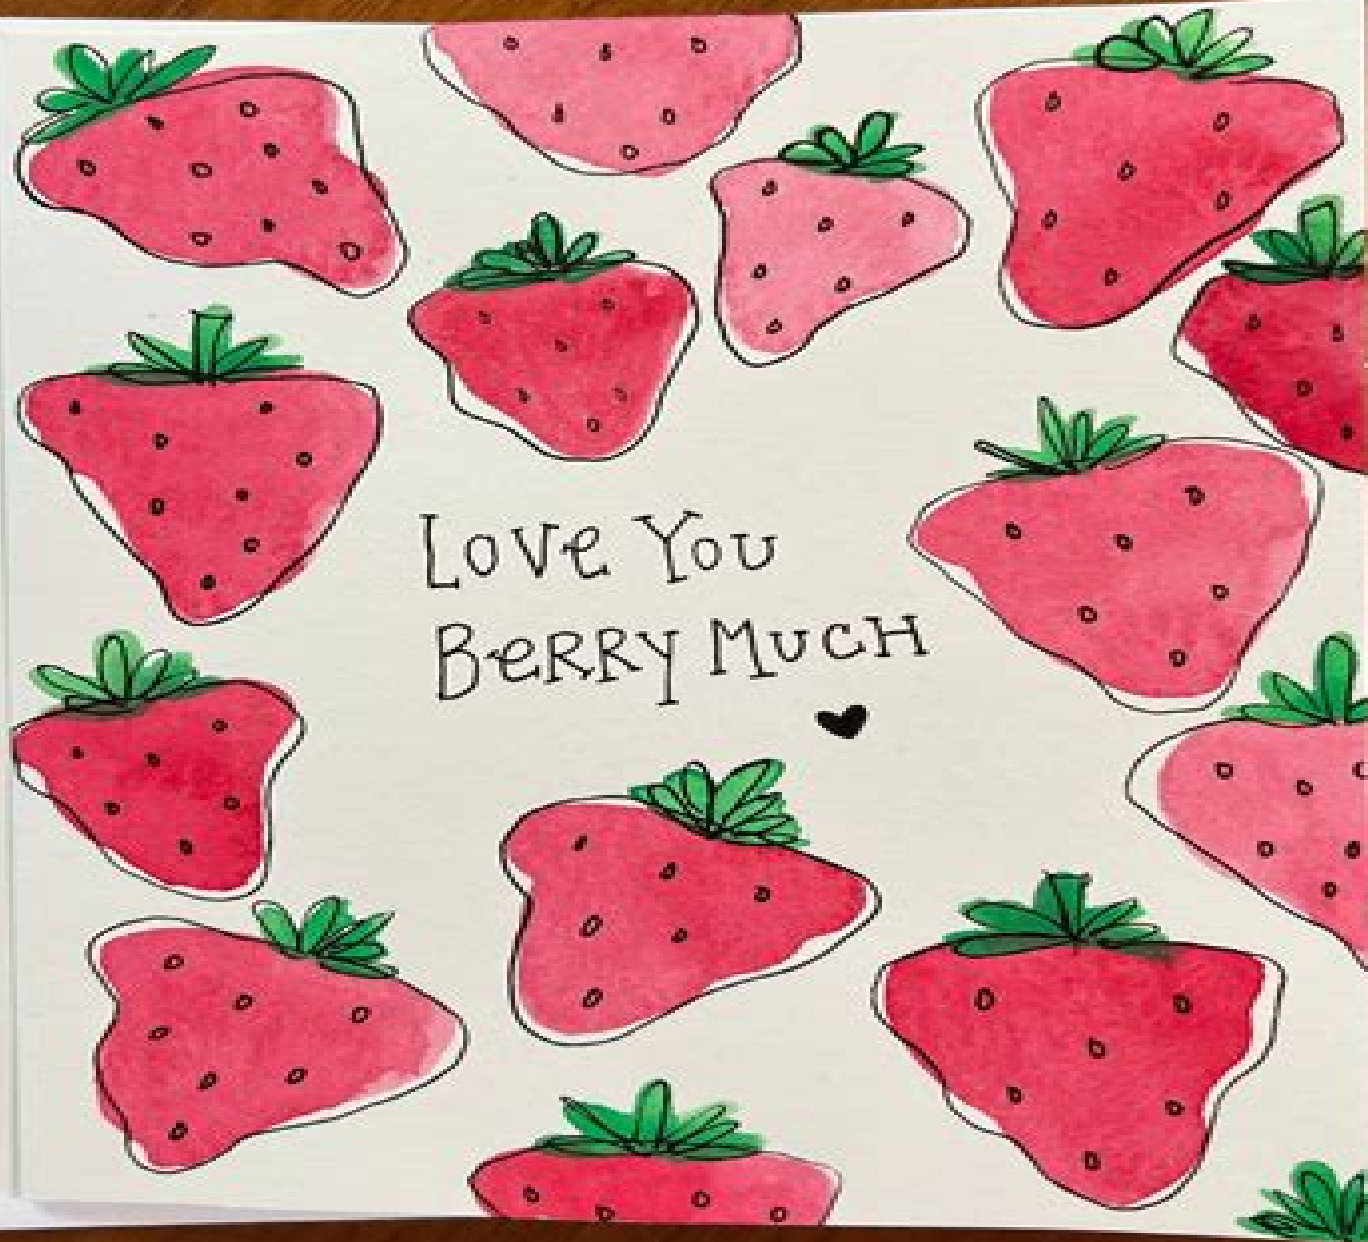 Love You
Berry Much